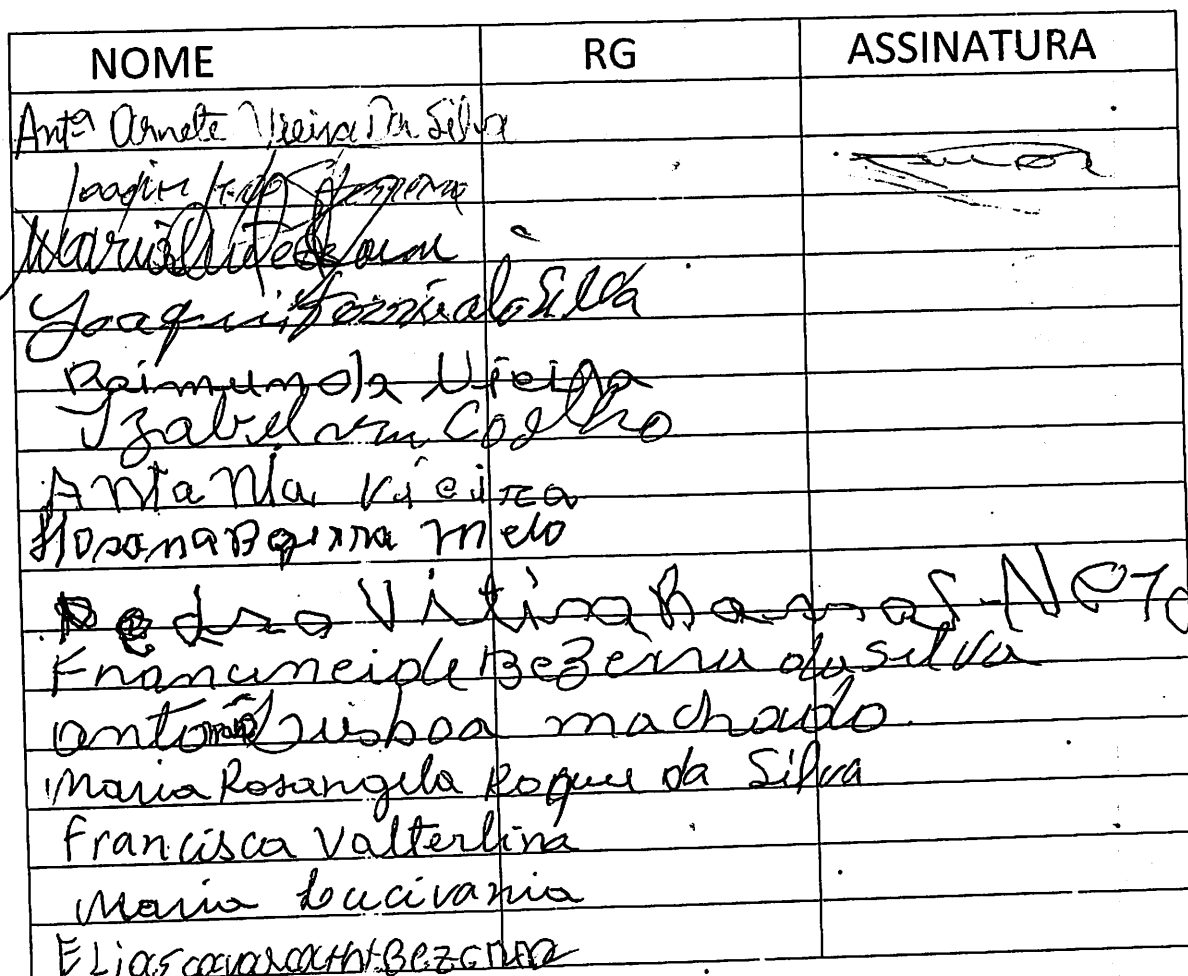 NOME RG ASSINATURA
Antª Arnete Vieira Da Silva
Joaquim
Maria
Joaquim Silva
Raimunda Vieira
Izabel Coelho
Antania Vieira
Hosana Bezerra Melo
Pedro Vitino Barros Neto
Francineide Bezerra da Silva
Lisboa machado
Maria Rosangela Roque da Silva
Francisca Valterlina
Maria Lucivania
Elias cavalcanti Bezerra